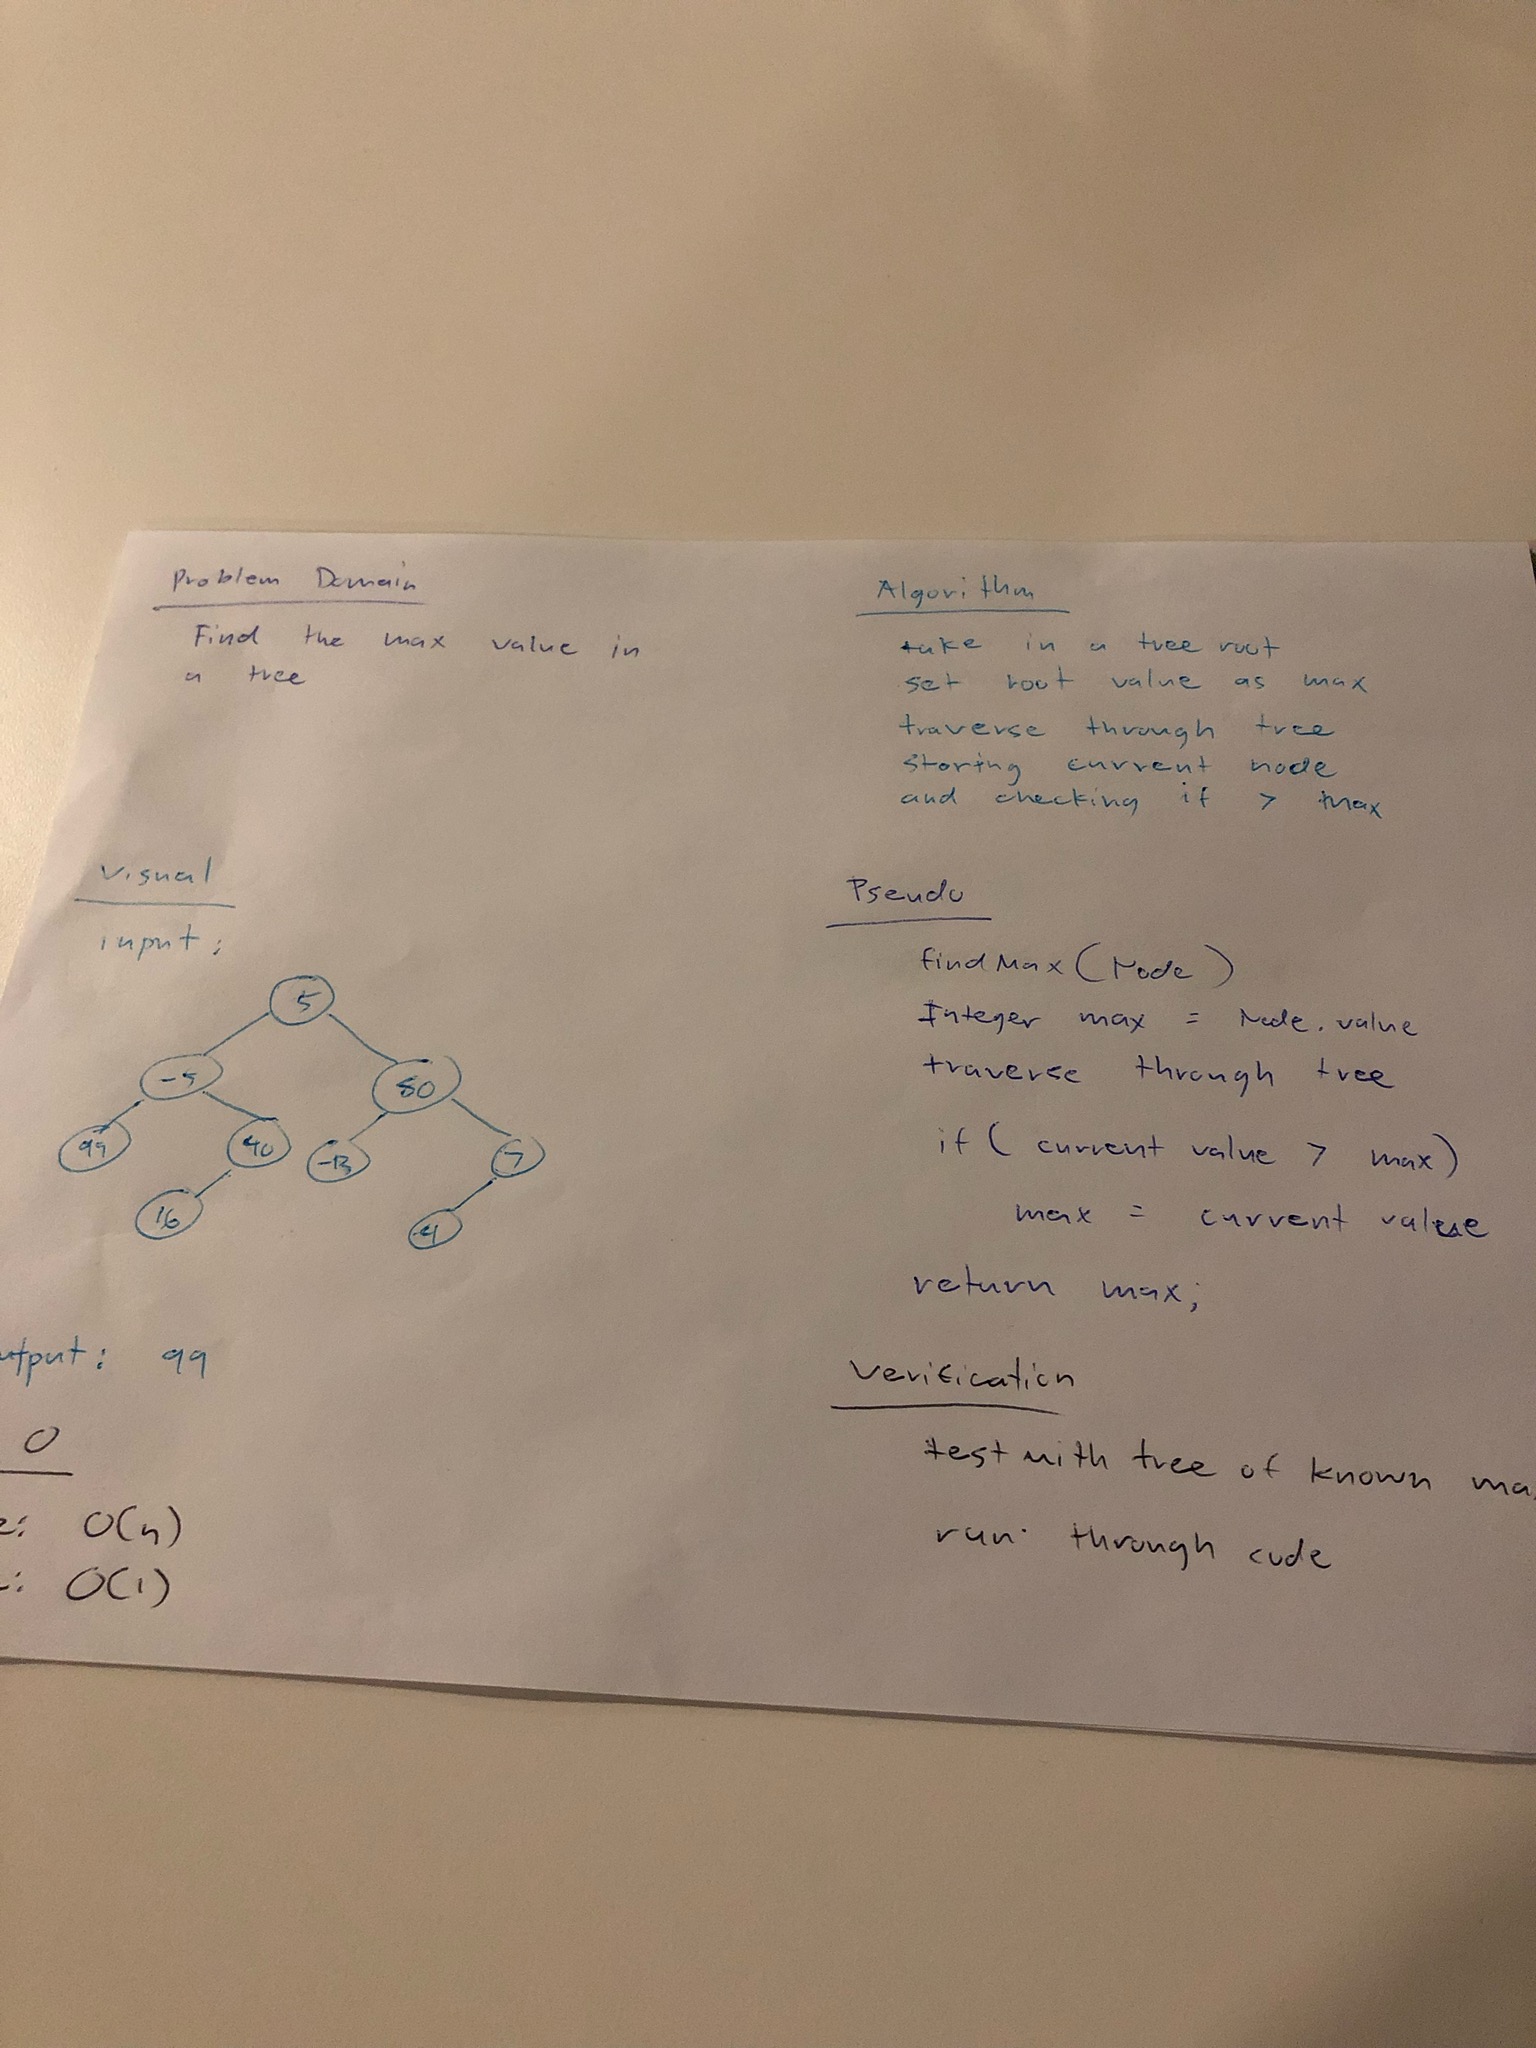 Problem Domain
Find the max value in
a tree
Visual
input:
5
-5 80
99 40 -13 7
16 -4
utput: 99
O
e: O(n)
: O(1)
Algorithm
take in a tree root
set root value as max
traverse through tree
storing current node
and checking if > max
Pseudo
findMax(Node)
Integer max = Node.value
traverse through tree
if (current value > max)
max = current value
return max;
Verification
test with tree of known ma
run through code